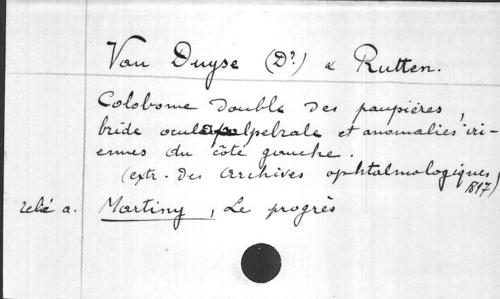 Van Duyse (Dr) & Rutten.
Colobome double des paupières,
bride oculopalpebrale et anomalies iri-
ennes du côté gauche.
(extr. des Archives ophtalmologiques,
1817)
relié a. Martiny, Le progrès